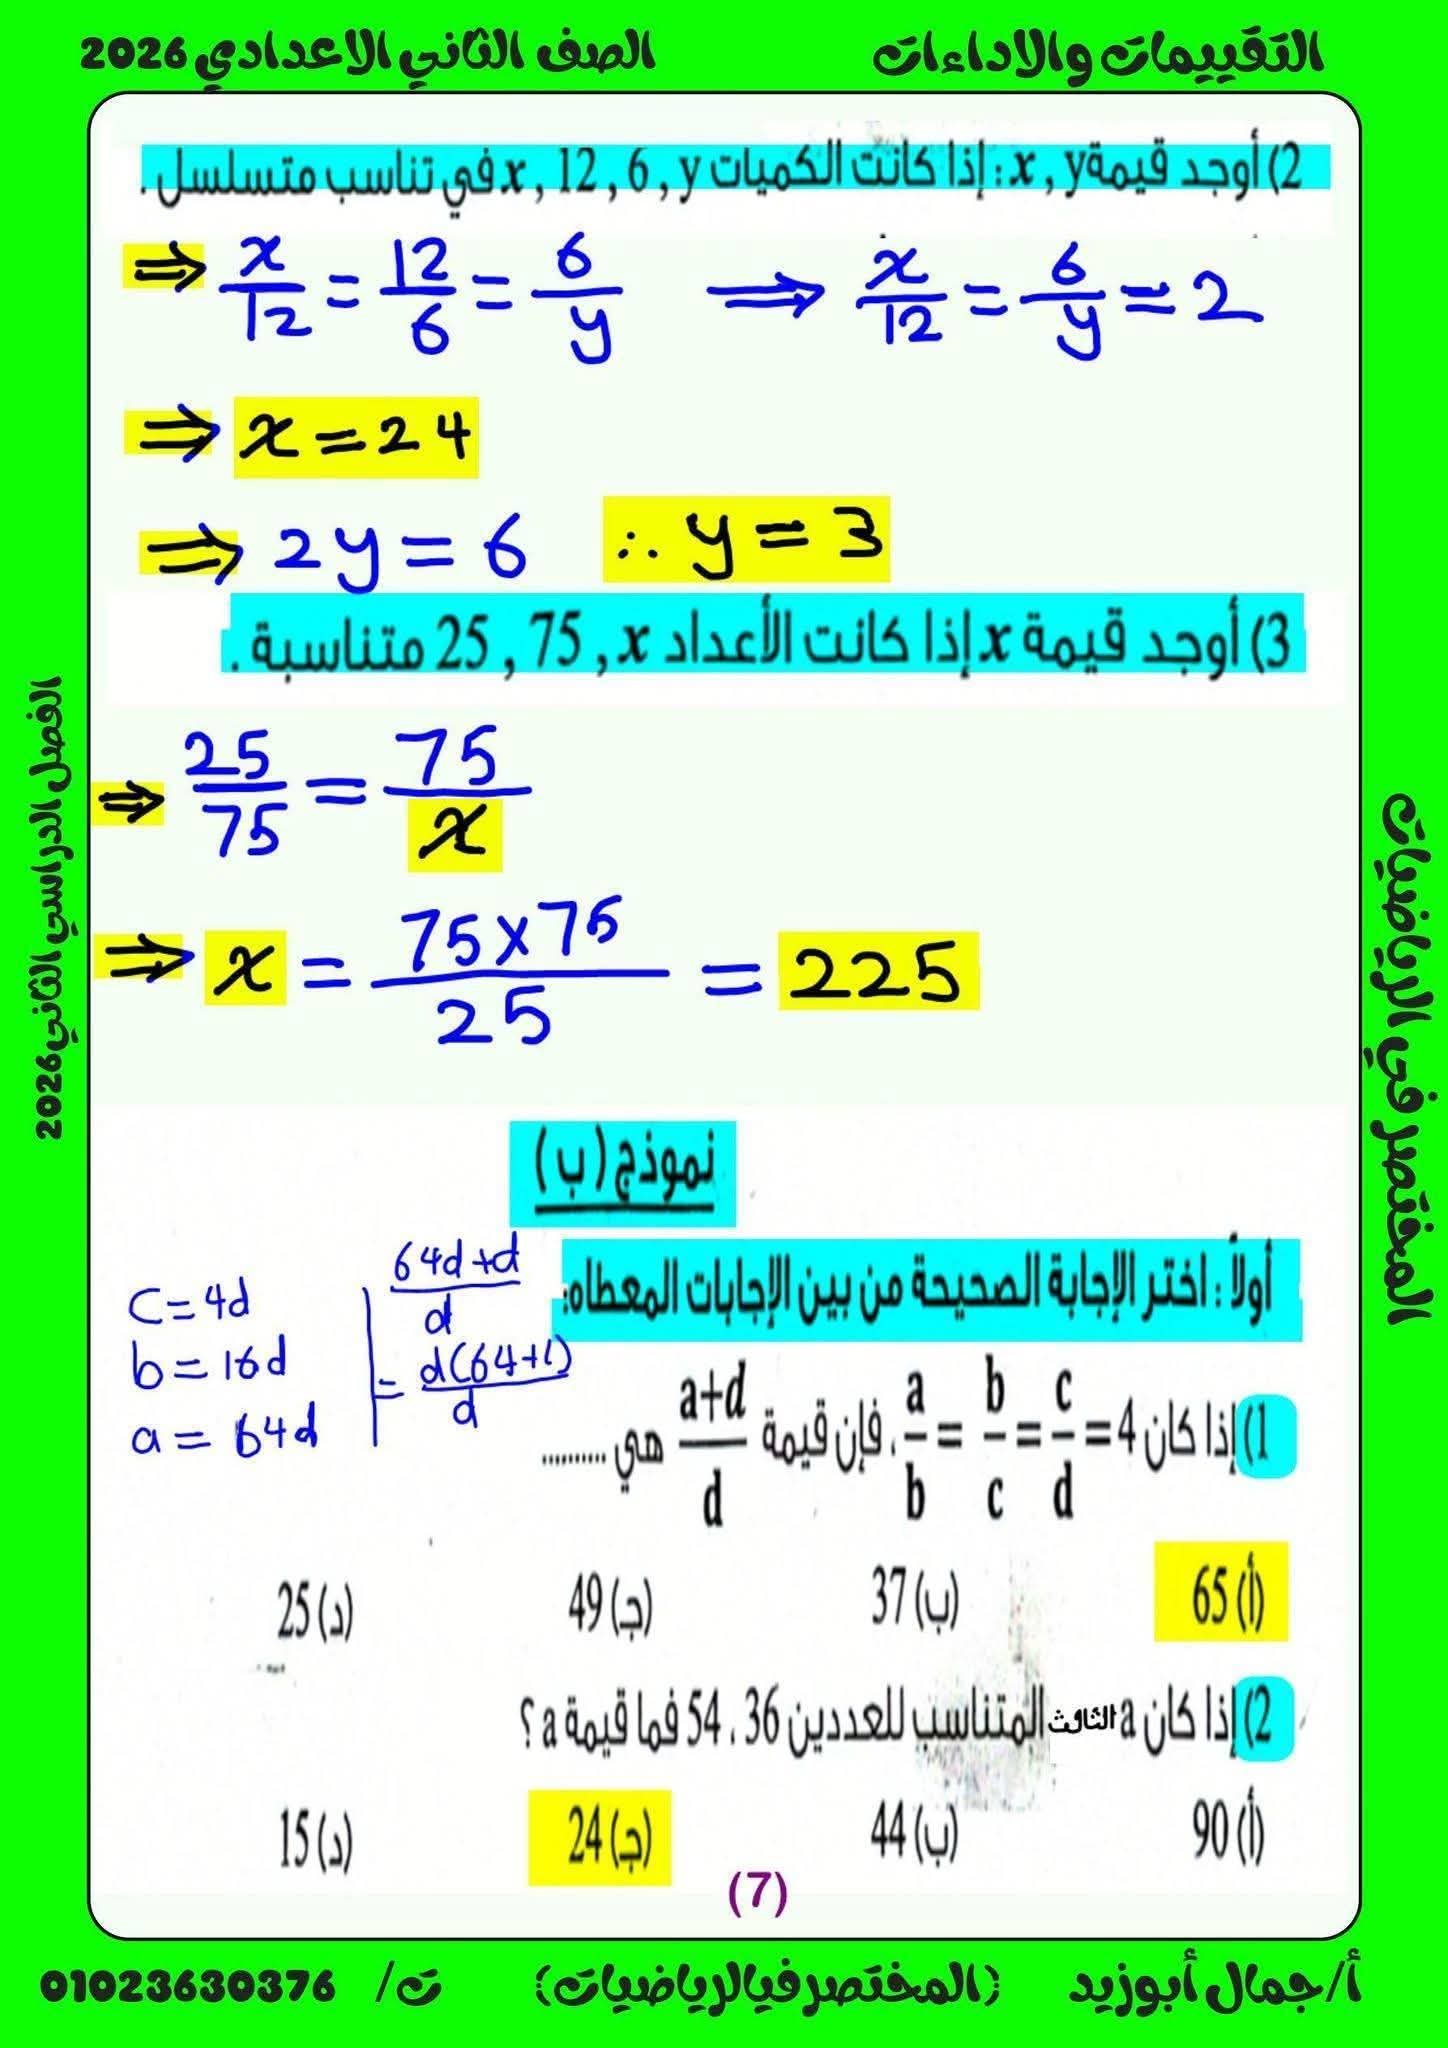 التقييمات والاداءات
الصف الثاني الاعدادي 2026
2) أوجد قيمة x , y : إذا كانت الكميات x , 12 , 6 , y في تناسب متسلسل .
⇒ x/12 = 12/6 = 6/y ⟹ x/12 = 6/y = 2
⇒ x = 24
⇒ 2y = 6 ∴ y = 3
3) أوجد قيمة x إذا كانت الأعداد 25 , 75 , x متناسبة .
⇒ 25/75 = 75/x
⇒ x = 75×75/25 = 225
نموذج (ب)
أولاً : اختر الإجابة الصحيحة من بين الإجابات المعطاه:
1) إذا كان a/b = b/c = c/d = 4 ، فإن قيمة a+d/d هي ..........
c = 4d
b = 16d
a = 64d
64d+d/d
= d(64+1)/d
(أ) 65 (ب) 37 (ج) 49 (د) 25
2) إذا كان a الثالث المتناسب للعددين 36 ، 54 فما قيمة a ؟
(أ) 90 (ب) 44 (ج) 24 (د) 15
(7)
الفصل الدراسي الثاني 2026
المختصر في الرياضيات
أ/جمال أبوزيد (المختصر فيالرياضيات) ت/ 01023630376